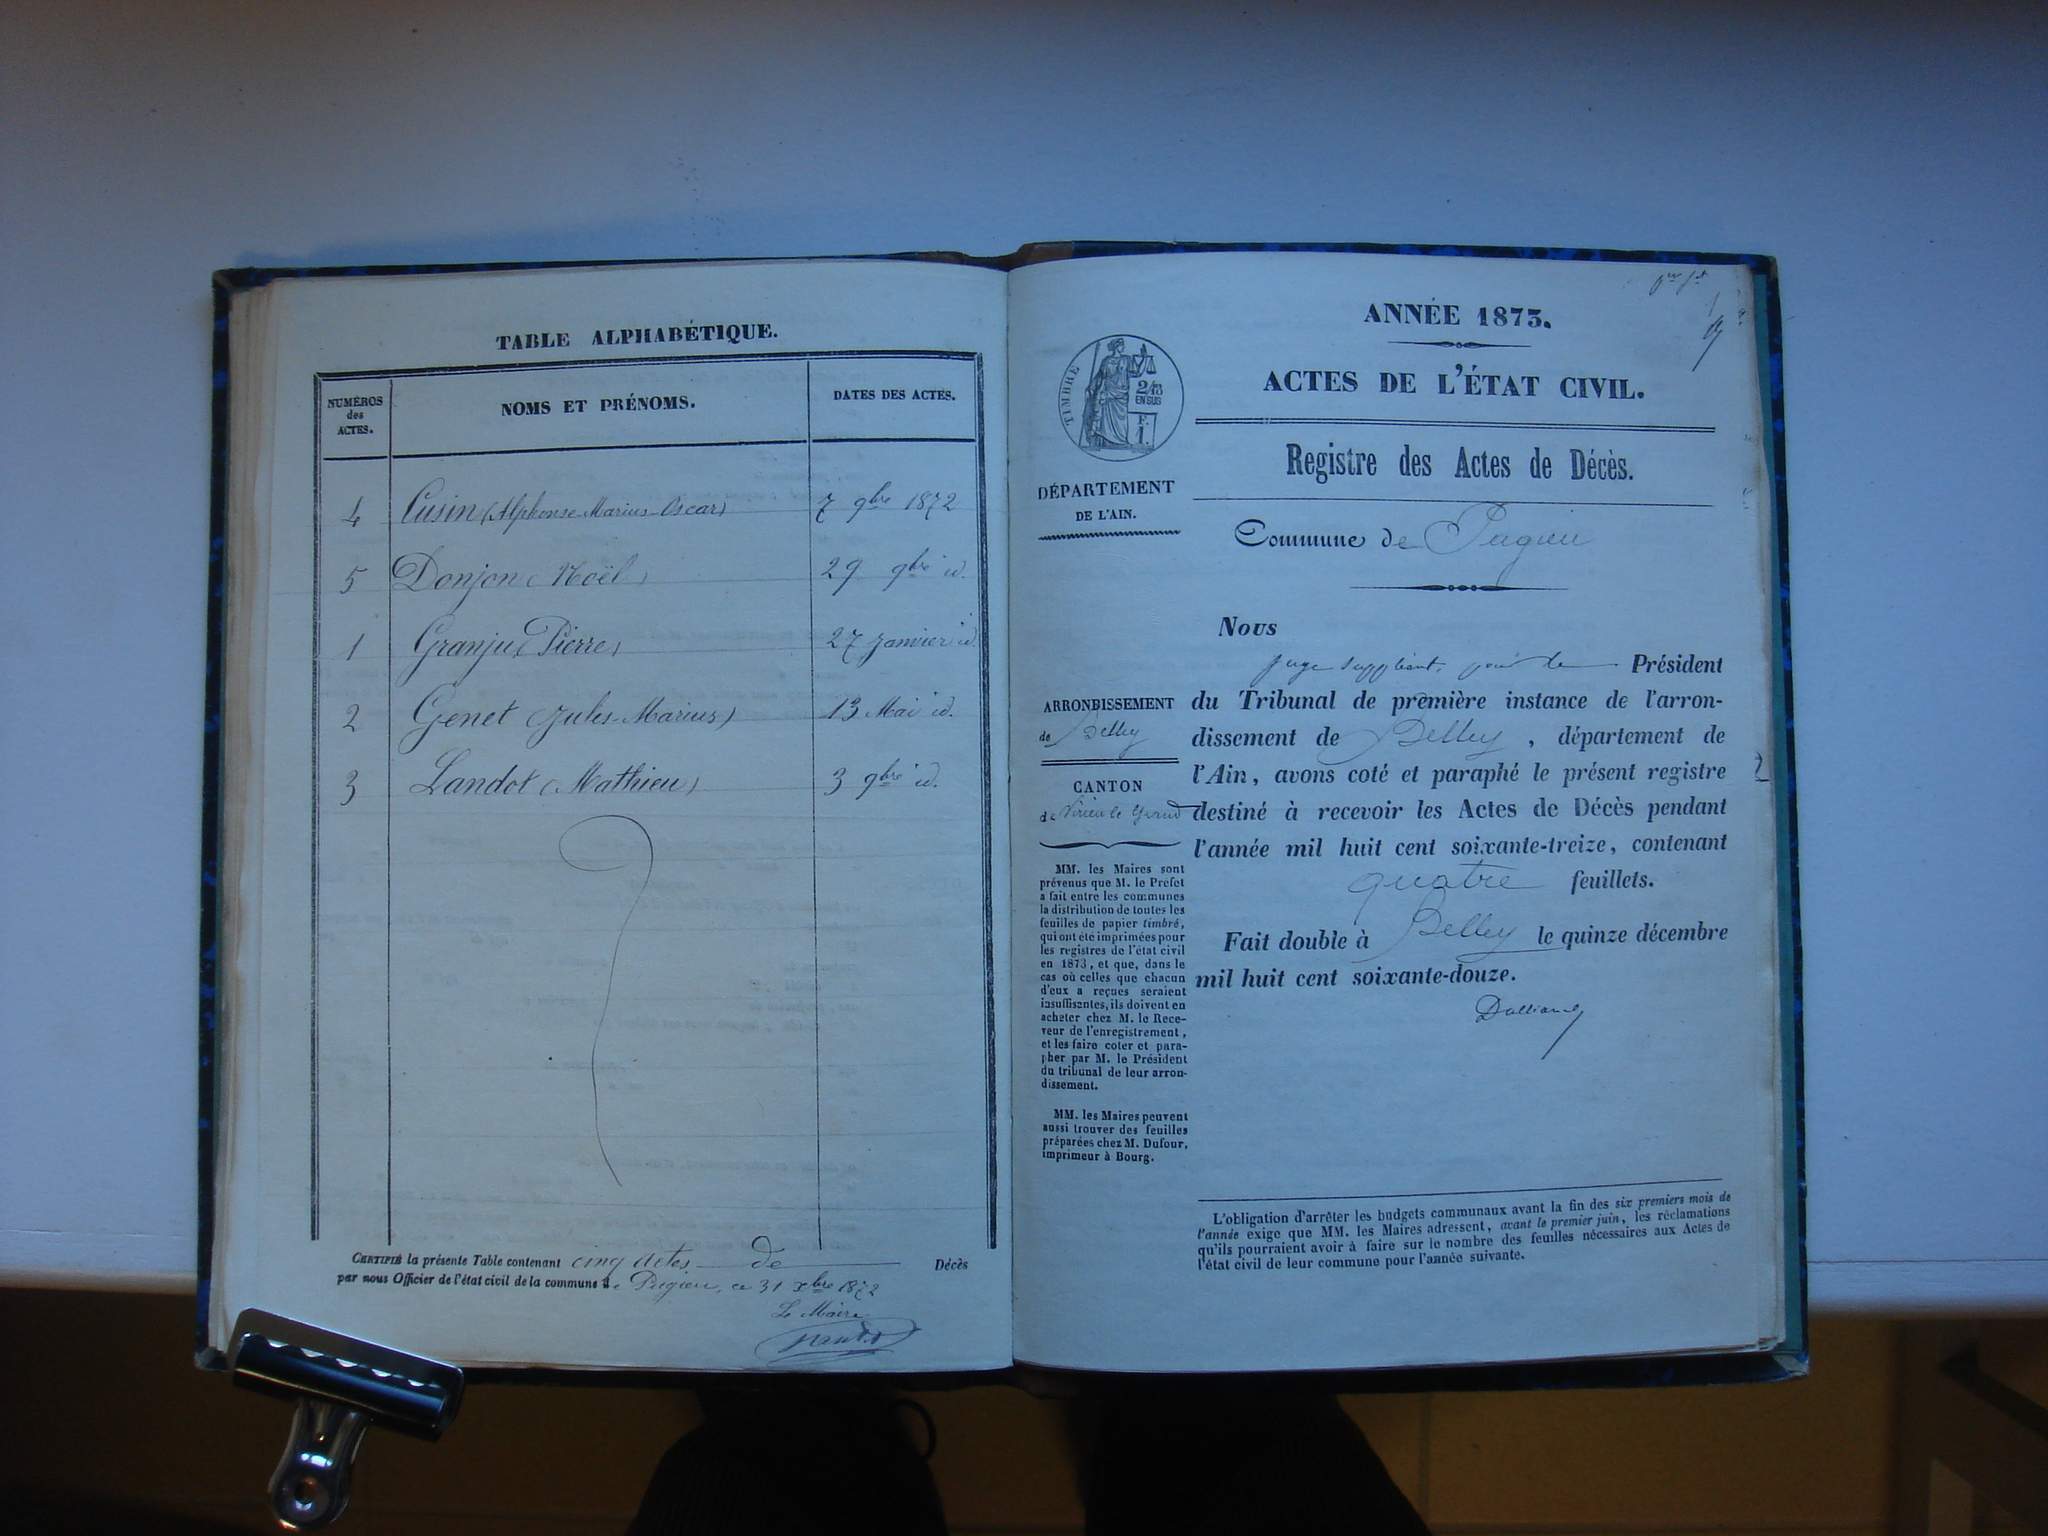 TABLE ALPHABÉTIQUE.
NUMÉROS des ACTES. NOMS ET PRÉNOMS. DATES DES ACTES.
4 Cusin (Alphonse Marius Oscar) 7 9bre 1872
5 Donjon (Noël) 29 9bre id.
1 Granju (Pierre) 27 Janvier id.
2 Genet (Jules Marius) 13 Mai id.
3 Landot (Mathieu) 3 9bre id.
CERTIFIÉ la présente Table contenant cinq actes de Décès
par nous Officier de l'état civil de la commune de Pugieu, ce 31 xbre 1872
Le Maire
ANNÉE 1873.
ACTES DE L'ÉTAT CIVIL.
TIMBRE
2/10
EN SUS
F.
1.
Registre des Actes de Décès.
DÉPARTEMENT
DE L'AIN.
Commune de Pugieu
ARRONDISSEMENT
de Belley
CANTON
de Virieu le Grand
MM. les Maires sont
prévenus que M. le Préfet
a fait entre les communes
la distribution de toutes les
feuilles de papier timbré,
qui ont été imprimées pour
les registres de l'état civil
en 1873, et que, dans le
cas où celles que chacun
d'eux a reçues seraient
insuffisantes, ils doivent en
acheter chez M. le Rece-
veur de l'enregistrement,
et les faire coter et para-
pher par M. le Président
du tribunal de leur arron-
dissement.
MM. les Maires peuvent
aussi trouver des feuilles
préparées chez M. Dufour,
imprimeur à Bourg.
Nous
juge suppléant, pour le Président
du Tribunal de première instance de l'arron-
dissement de Belley, département de
l'Ain, avons coté et paraphé le présent registre
destiné à recevoir les Actes de Décès pendant
l'année mil huit cent soixante-treize, contenant
quatre feuillets.
Fait double à Belley le quinze décembre
mil huit cent soixante-douze.
L'obligation d'arrêter les budgets communaux avant la fin des six premiers mois de
l'année exige que MM. les Maires adressent, avant le premier juin, les réclamations
qu'ils pourraient avoir à faire sur le nombre des feuilles nécessaires aux Actes de
l'état civil de leur commune pour l'année suivante.